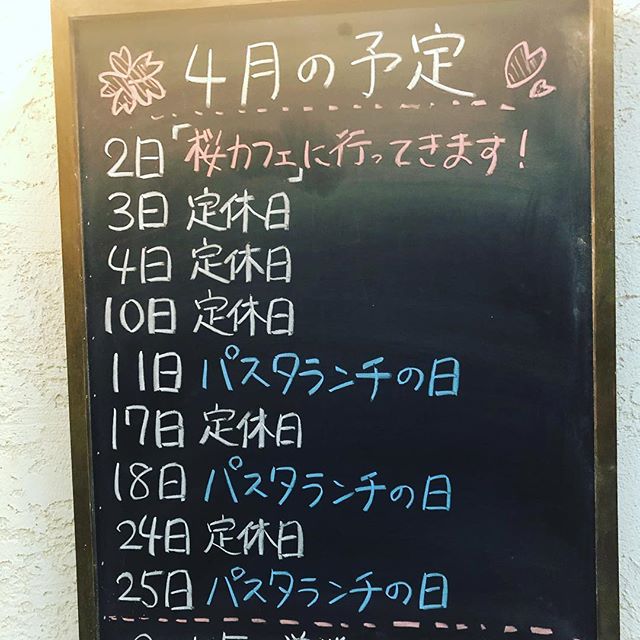 4月の予定
2日「桜カフェ」に行ってきます!
3日 定休日
4日 定休日
10日 定休日
11日 パスタランチの日
17日 定休日
18日 パスタランチの日
24日 定休日
25日 パスタランチの日